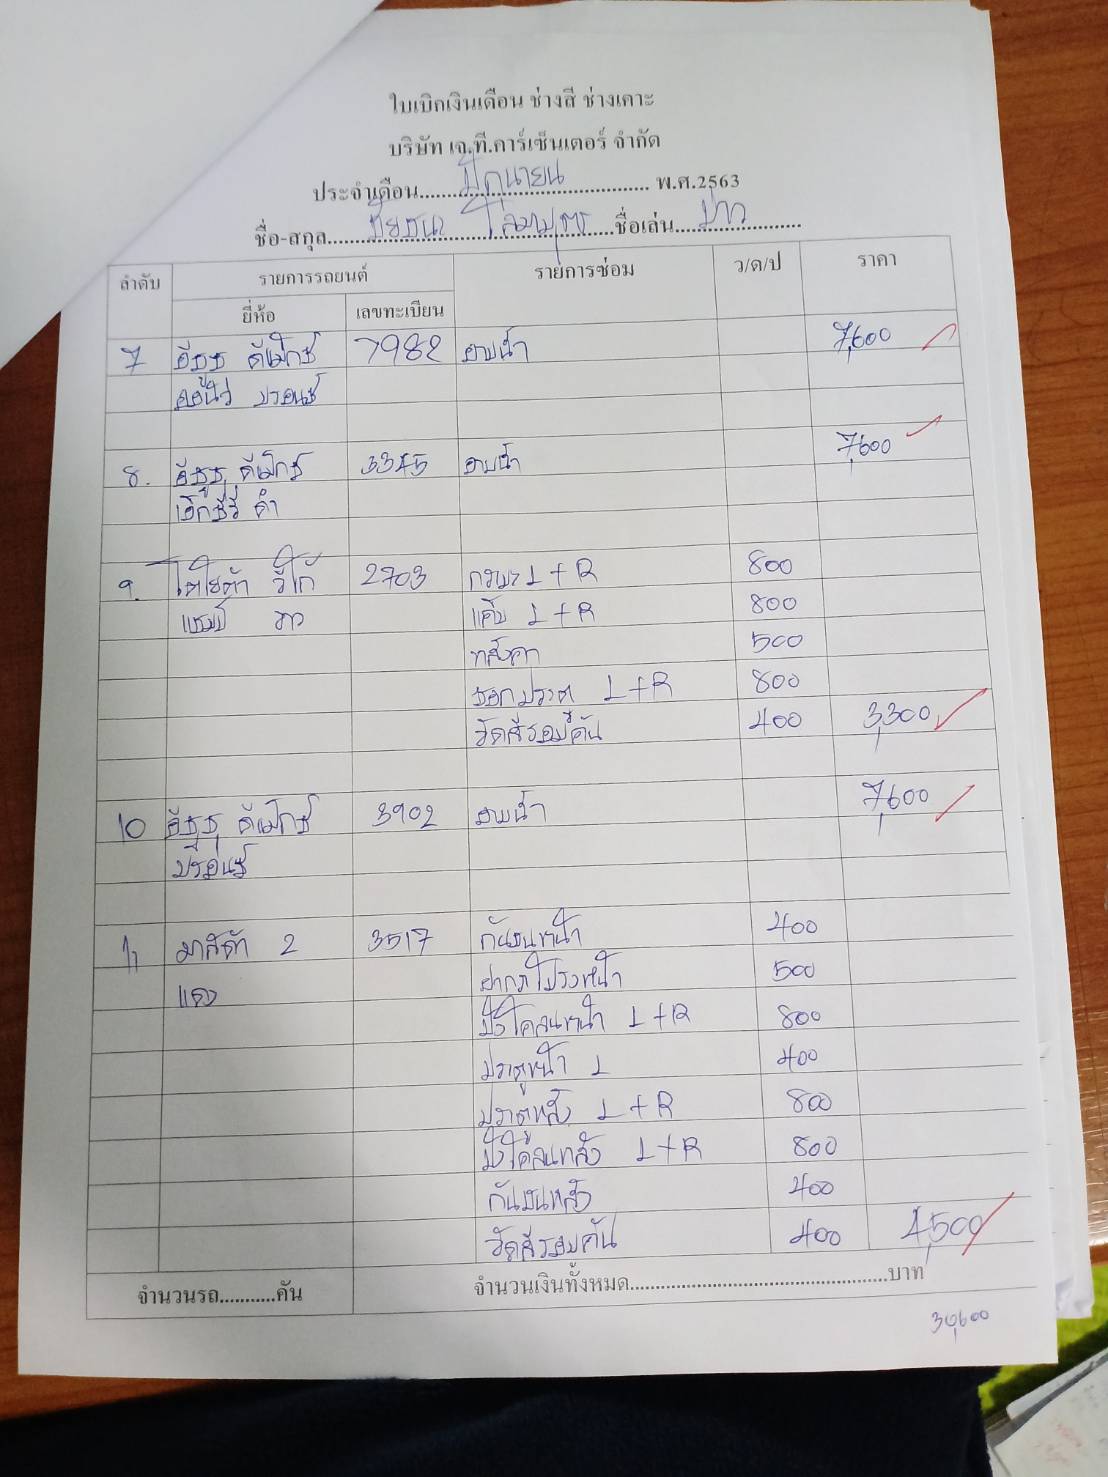 ใบเบิกเงินเดือน ช่างสี ช่างเคาะ
บริษัท เจ.ที.คาร์เซ็นเตอร์ จำกัด
ประจำเดือน มิถุนายน พ.ศ.2563
ชื่อ-สกุล ชื่อเล่น
ลำดับ รายการรถยนต์ รายการซ่อม ว/ด/ป ราคา
ยี่ห้อ เลขทะเบียน
7 อีซูซุ ดีแม็กซ์ 7982 อาบน้ำ 7,600
ออนิว บรอนซ์
8. อีซูซุ ดีแม็กซ์ 3345 อาบน้ำ 7,600
เอ็กซ์ซี่ ดำ
9. โตโยต้า วีโก้ 2703 กระบะ L+R 800
แชมป์ เทา แค๊บ L+R 800
หลังคา 500
ซอกประตู L+R 800
ขัดสีรอบคัน 400 3,300
10 อีซูซุ ดีแม็กซ์ 3902 อาบน้ำ 7,600
บรอนซ์
11 มาสด้า 2 3517 กันชนหน้า 400
แดง ฝากระโปรงหน้า 500
บังโคลนหน้า L+R 800
ประตูหน้า L 400
ประตูหลัง L+R 800
บังโคลนหลัง L+R 800
กันชนหลัง 400
ขัดสีรอบคัน 400 4,500
จำนวนรถ...........คัน จำนวนเงินทั้งหมด..........บาท
30,600